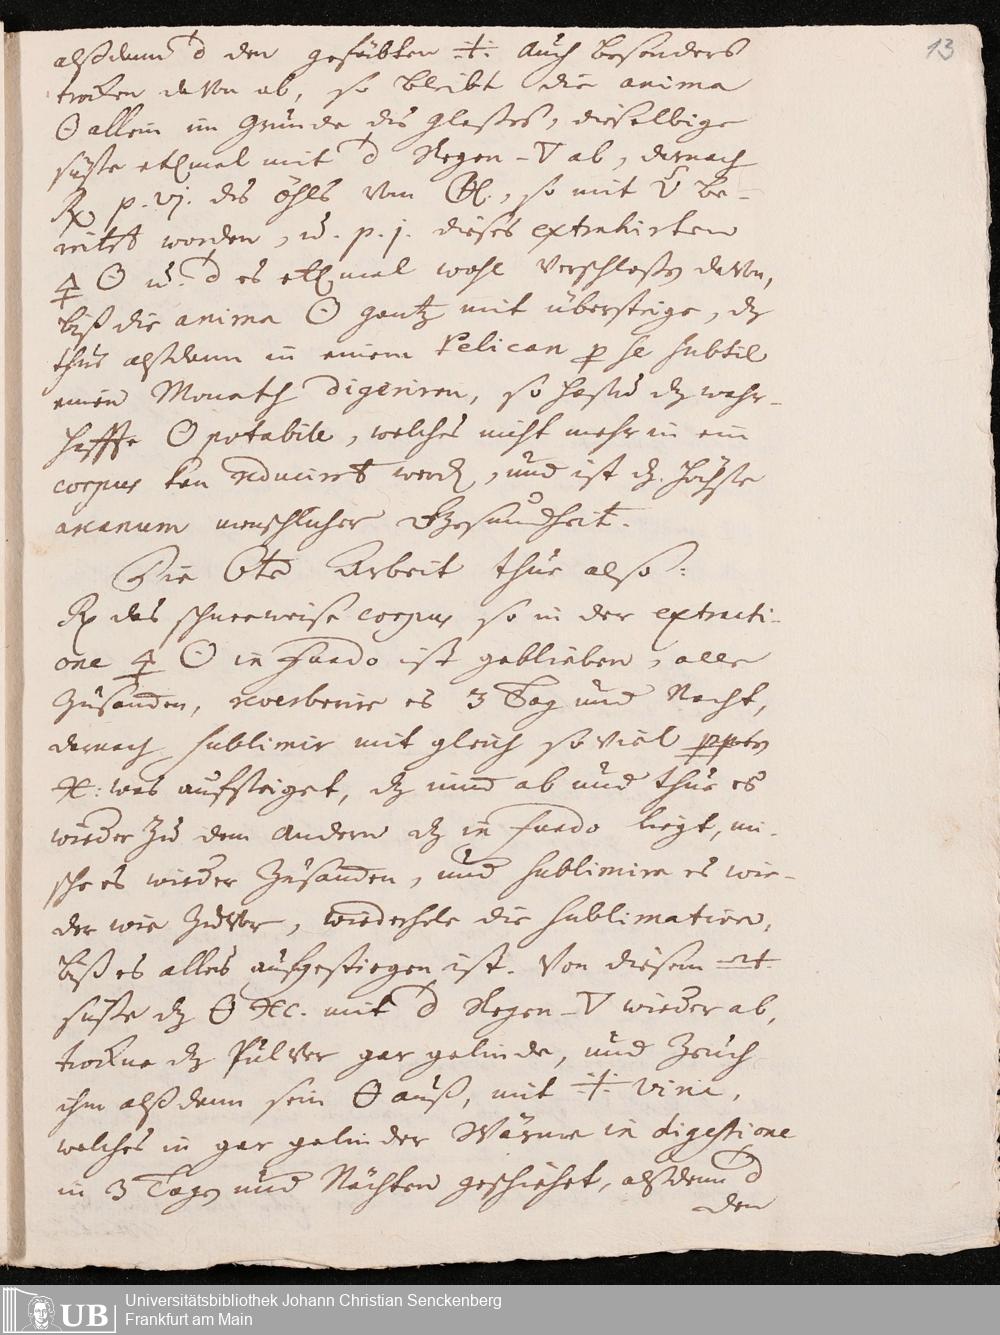 13
alßdann den gefärbten ·/· auch besonders
trocken davon ab, so bleibt die anima
☉ allein im Grunde des Glaßes, dieselbige
süße etlmal mit Regen-▽ ab, darnach
℞ p. vj. des öhls vom, so mit be-
reitet worden, u. p. j. dieses extrahirten
🜍 ☉ u. es etlmal wohl verschloßen davon,
biß die anima ☉ gantz mit übersteige, dz
thue alßdann in einem Pelican p se subtil
einen Monath digeriren, so hastu dz wahr-
haffte ☉ potabile, welches nicht mehr in ein
corpus kan reducirt werd, und ist dz. höchste
arcanum menschlicher Gesundheit.
Die 6te Arbeit thue also:
℞ das schneeweise corpus so in der extracti-
one 🜍 ☉ in Fundo ist geblieben, alle
zusamen, reverberire es 3 Tag und Nacht,
darnach sublimir mit gleich so viel ppten
🞶: was aufsteiget, dz nimd ab und thue es
wieder zu dem Andern dz in fundo liegt, mi-
sche es wieder zusamen, und sublimire es wie-
der wie zuvor, wiederhole die sublimation,
biß es alles aufgestiegen ist. Von diesem
süße dz mit Regen-▽ wieder ab,
trockne dz Pulver gar gelinde, und Zeuch
ihm alßdann sein 🜔 auß, mit ·/· vini,
welches in gar gelinder Wärme in digestione
in 3 Tagen und Nächten geschiehet, alßdann
den
UB
Universitätsbibliothek Johann Christian Senckenberg
Frankfurt am Main